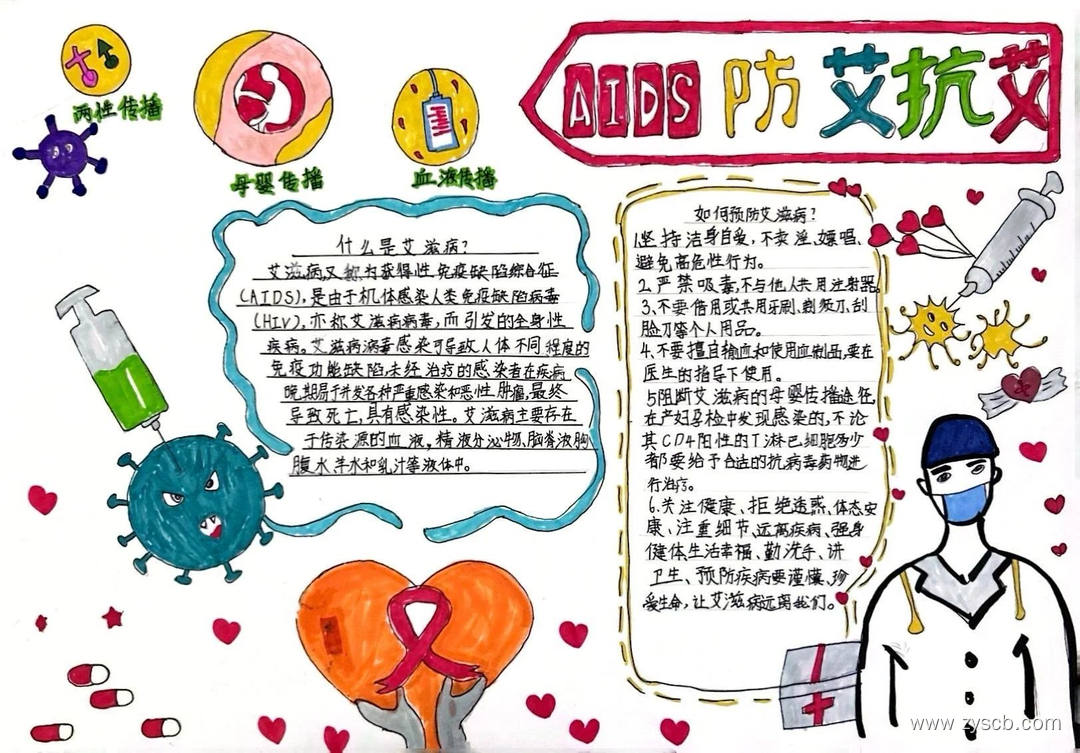 AIDS 防艾抗艾
两性传播
母婴传播
血液传播
什么是艾滋病?
艾滋病又称为获得性免疫缺陷综合征
(AIDS),是由于机体感染人类免疫缺陷病毒
(HIV),亦称艾滋病病毒,而引发的全身性
疾病。艾滋病病毒感染可导致人体不同程度的
免疫功能缺陷,未经治疗的感染者在疾病
晚期易于并发各种严重感染和恶性肿瘤,最终
导致死亡,具有感染性。艾滋病主要存在
于传染源的血液,精液分泌物、脑脊液胸
腹水羊水和乳汁等液体中。
如何预防艾滋病?
1.坚持洁身自爱,不卖淫、嫖唱、
避免高危性行为。
2.严禁吸毒,不与他人共用注射器。
3、不要借用或共用牙刷、剃须刀、刮
脸刀等个人用品。
4、不要擅自输血和使用血制品,要在
医生的指导下使用。
5阻断艾滋病的母婴传播途径,
在产妇孕检中发现感染的,不论
其CD4阳性的T淋巴细胞多少
都要给予合适的抗病毒药物进
行治疗。
6.关注健康、拒绝诱惑、体态安
康、注重细节、远离疾病、强身
健体生活幸福、勤洗手、讲
卫生、预防疾病要谨慎、珍
爱生命,让艾滋病远离我们。
www.zyscb.com